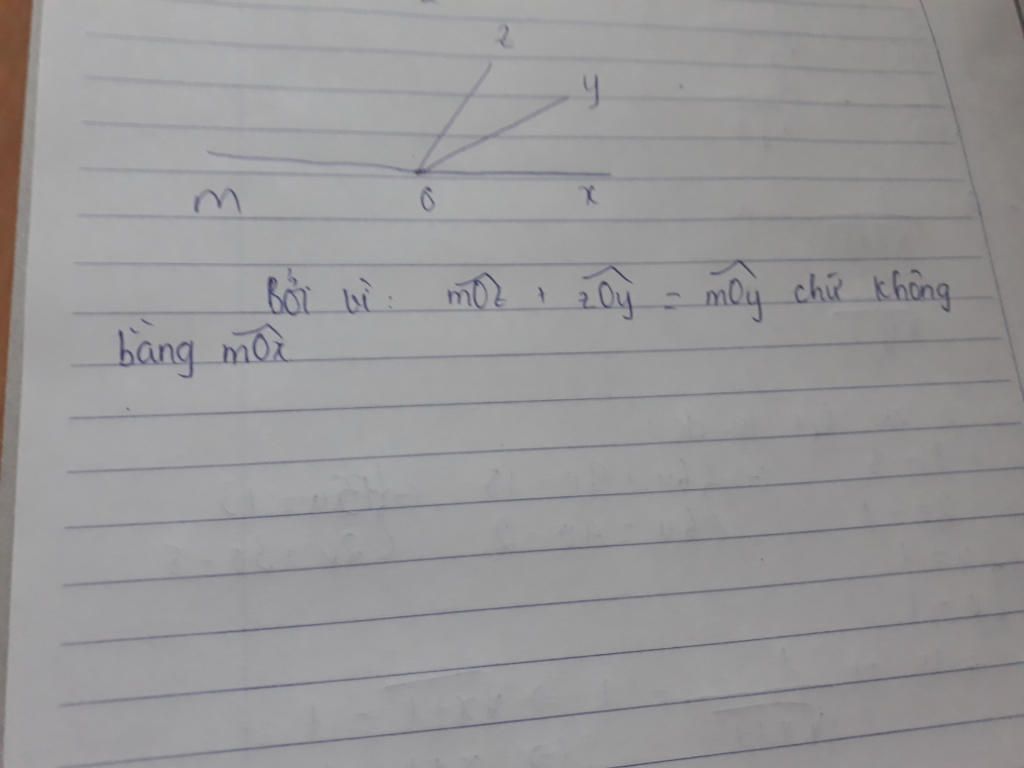 z
y
m O x
Bởi vì: mOz + zOy = mOy chứ không
bằng mOx